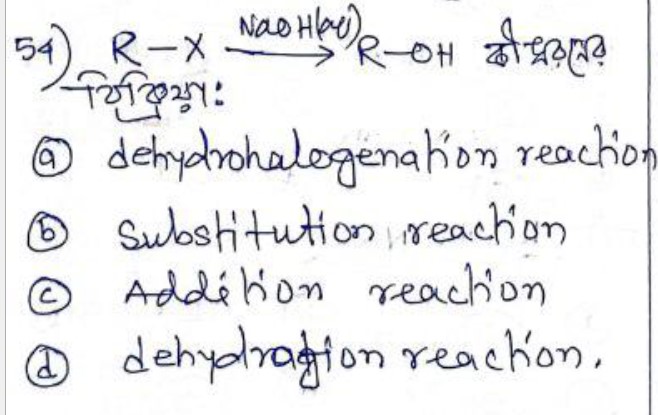 54) R-X NaOH(aq)→ R-OH কী ধরনের
বিক্রিয়া:
ⓐ dehydrohalogenation reaction
ⓑ Substitution reaction
ⓒ Addition reaction
ⓓ dehydration reaction.